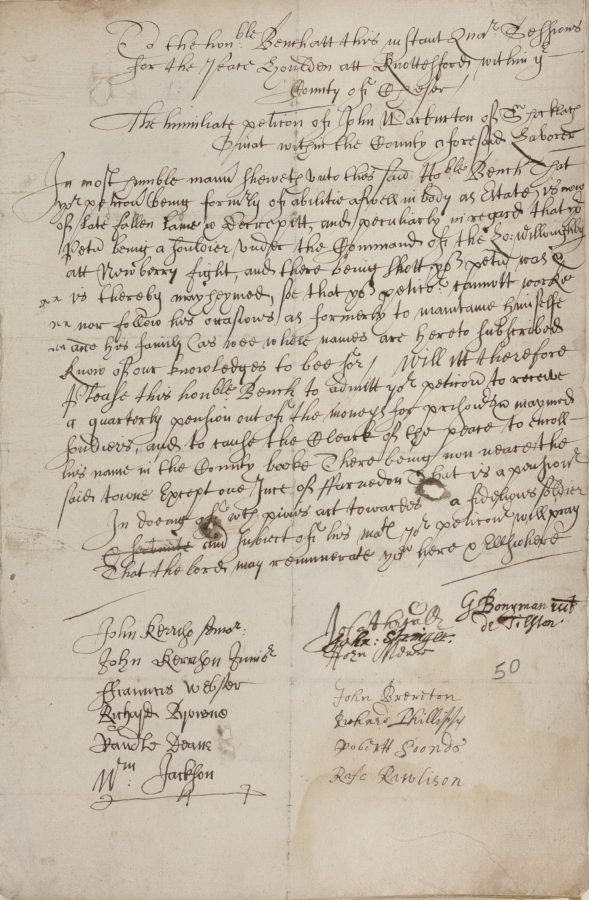 To the hon:ble Bench att this instant Quar: Sessions
for the Peace houlden att Knottesford within ye
County of Chester
The humiliate peticon of John Warburton of
within the County aforesaid Laborer
In most humble mannr sheweth unto this said Hoble Bench That
yor peticonr being formrly of abilitie aswell in body as Estate is now
of late fallen lame & decrepitt, and peculiarly in regard that yor
Petr being a souldier under the Command of the Lo: willoughby
att Newberry fight, and there being shott yor petr was &
is thereby maymed, soe that yor peticonr cannott worke
nor follow his occasions as formerly to maintaine himselfe
and his family (as wee whose names are hereto subscribed
know of our knowledges to bee soe) Will itt therefore
Please this honble Bench to admitt yor peticonr to receive
a quarterly pension out of the moneys for prisonrs & maymed
souldiers, and to cause the Cleark of the peace to enroll
his name in the County booke There being non neare the
said towne Except one Jnce of ffarnedon That is a pensionr
In doeing of wch pious act towardes a fidelious soldier
and subject of his matie yor peticonr will pray
That the lord may remunerate yor here & Ellswhere
John Kerrcho senior
John Kerrchon Junior
Francis Webster
Richard Browne
Randle Deane
Wm: Jackson
G Bonyman rect
de Tilston
50
John Brereton
Richard Phillipps
Robertt Soonds
Rafe Rawlison